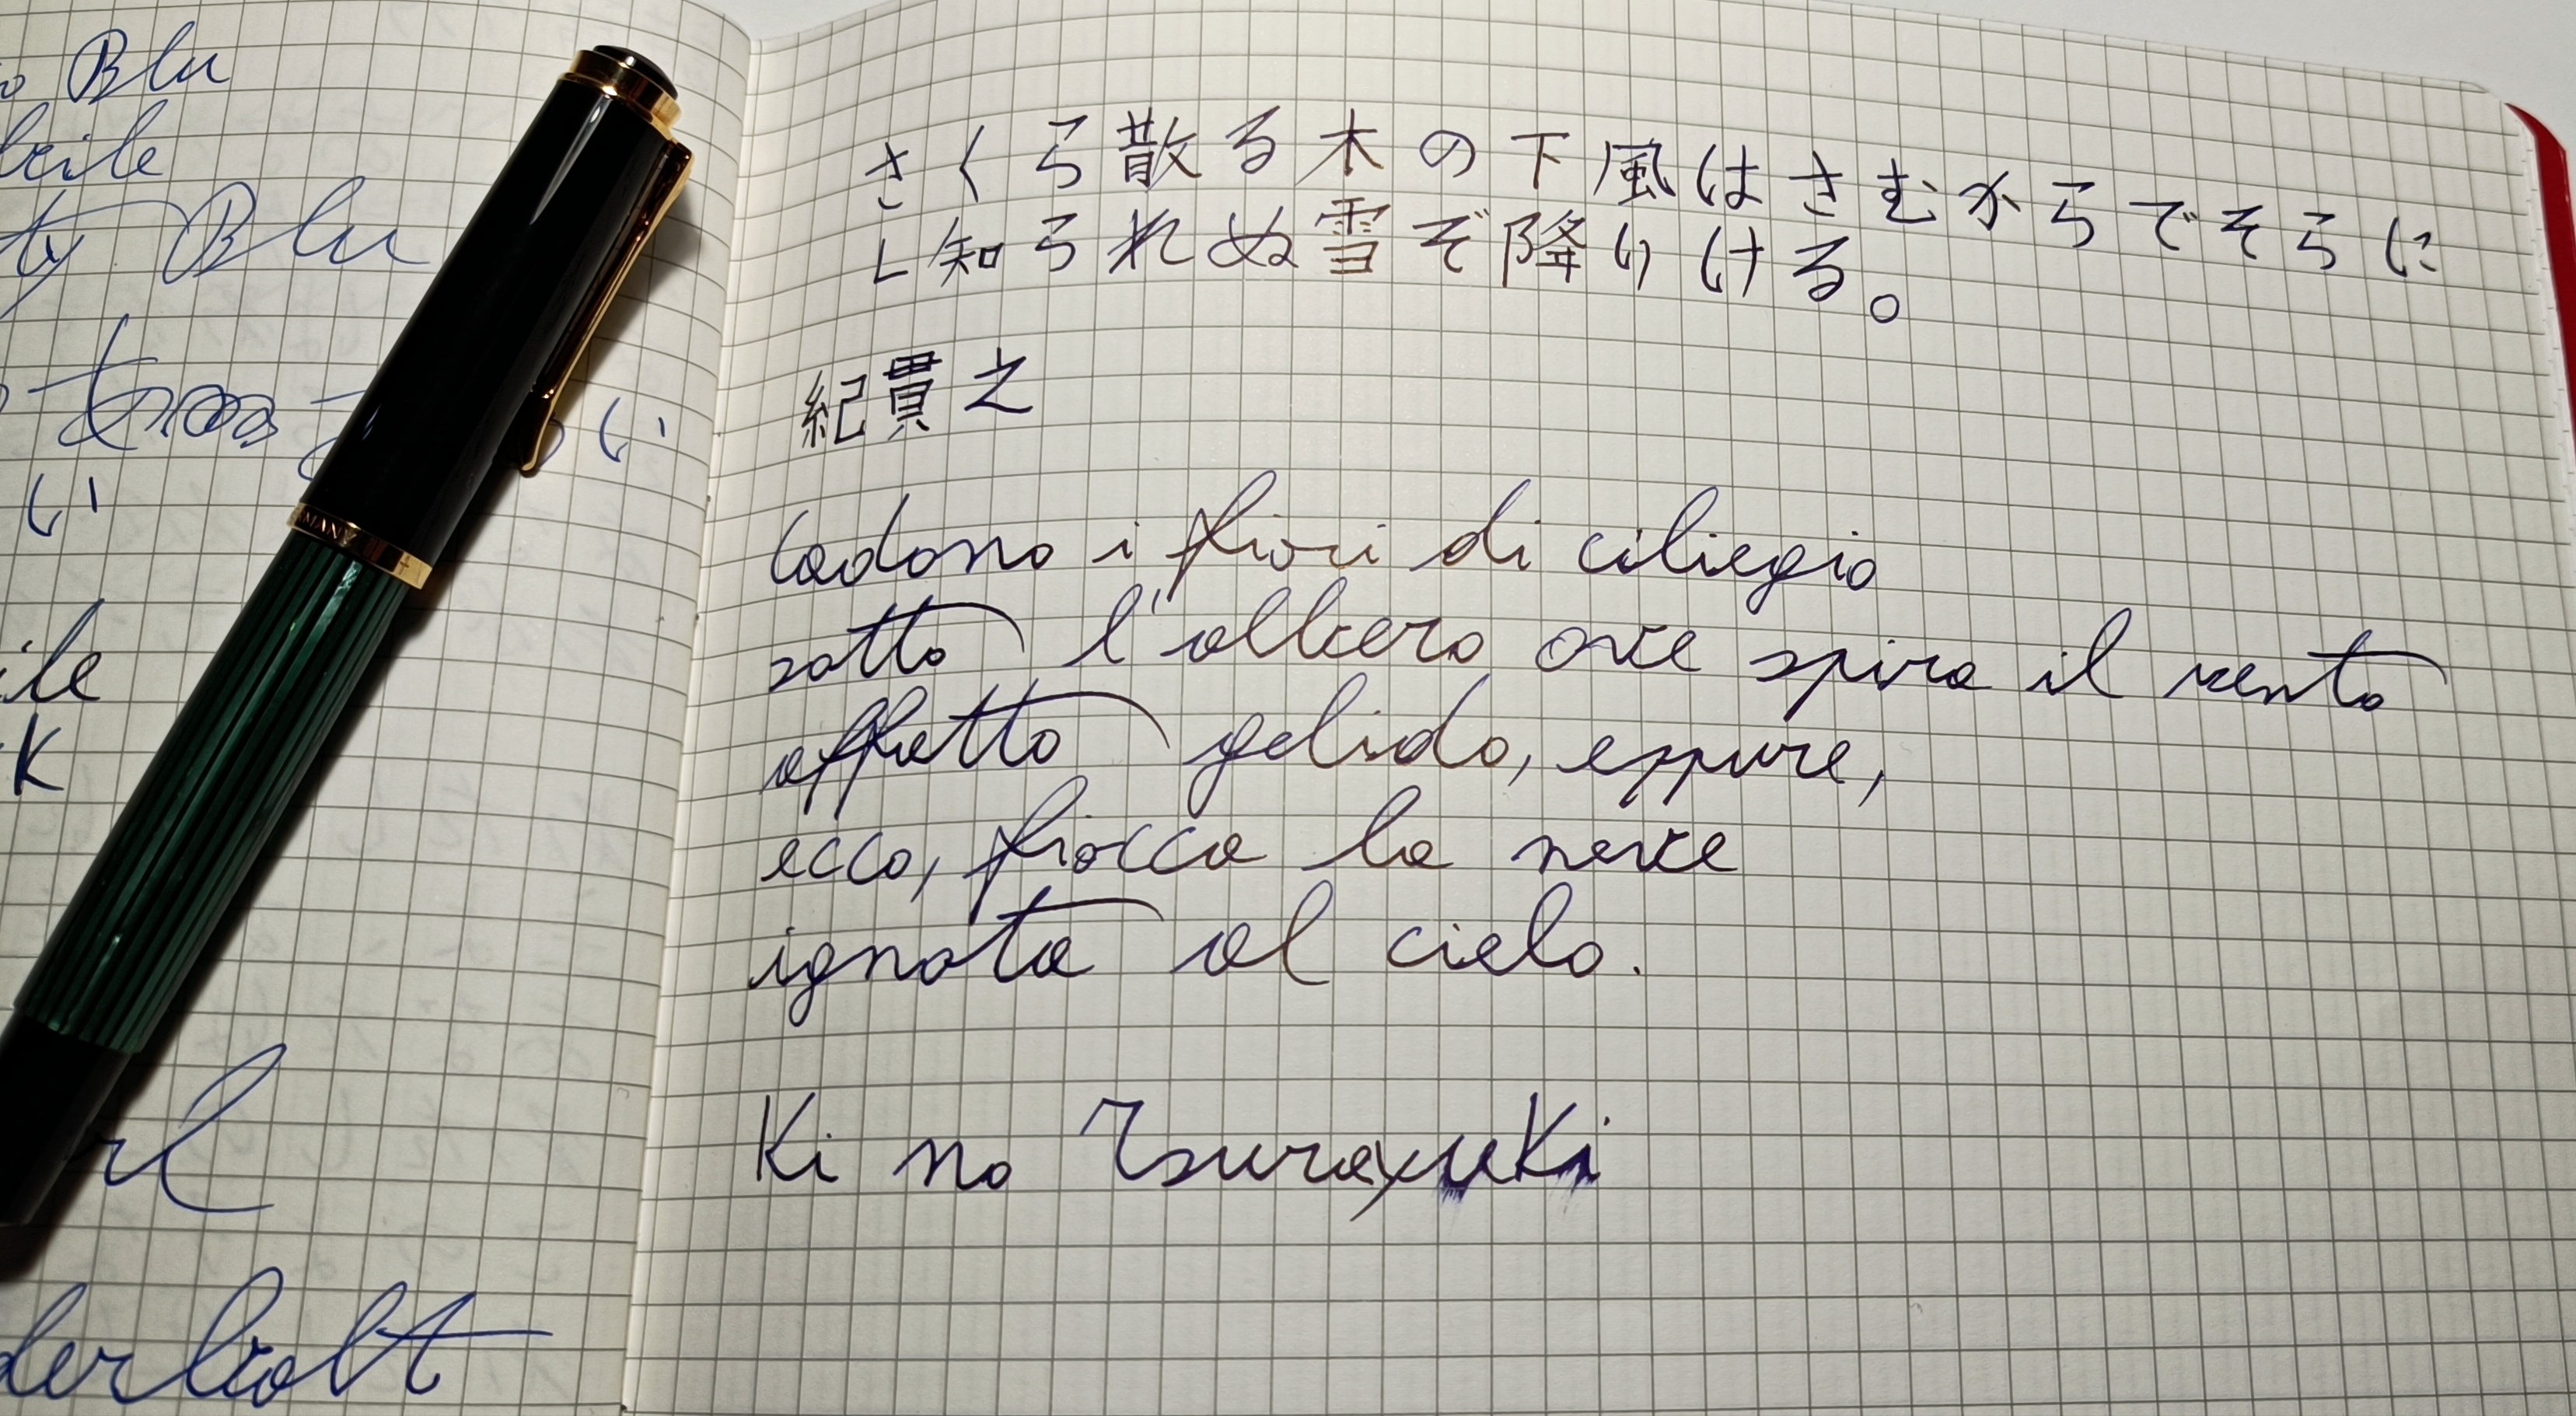 Blu
ty Blu
い
い
ile
K
derbolt
MANY
さくら散る木の下風はさむからでそらに
し知られぬ雪ぞ降りける。
紀貫之
Cadono i fiori di ciliegio
sotto l'albero ove spira il vento
affatto gelido, eppure,
ecco, fiocca la neve
ignota al cielo.
Ki no Tsurayuki